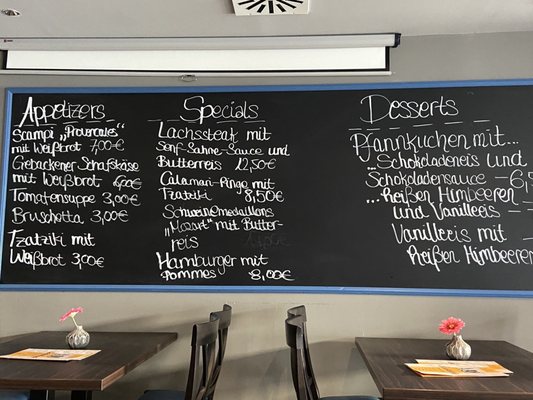 Appetizers
Scampi „Provencales“
mit Weißbrot 7,00€
Gebackener Schafskäse
mit Weißbrot 6,00€
Tomatensuppe 3,00€
Bruschetta 3,00€
Tzatziki mit
Weißbrot 3,00€
Specials
Lachssteaf mit
Senf-Sahne-Sauce und
Butterreis 12,50€
Calamari-Ringe mit
Tzatziki 8,50€
Schweinemedaillons
„Mozart“ mit Butter-
reis
Hamburger mit
Pommes 8,00€
Desserts
Pfannkuchen mit...
...Schokoladeneis und
Schokoladensauce – 6,5
...heißen Himbeeren
und Vanilleeis –
Vanilleeis mit –
heißen Himbeeren